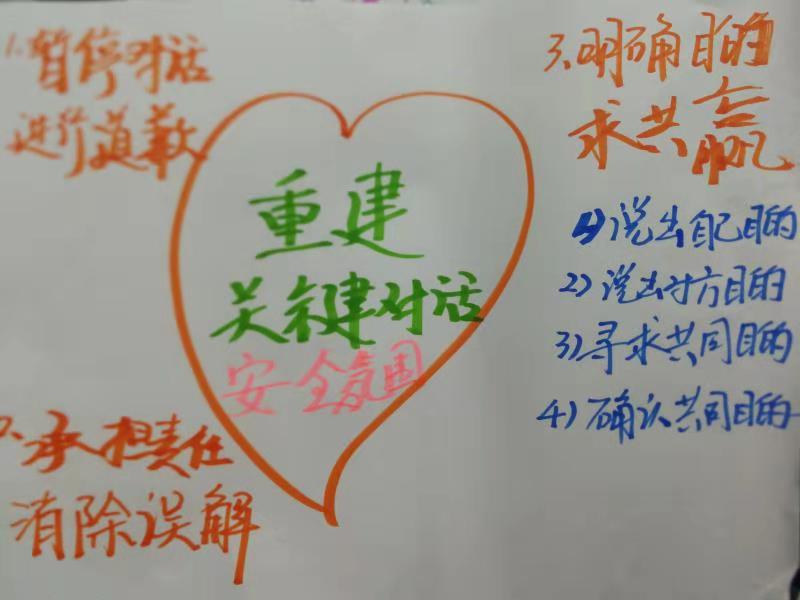 1.暂停对话
进行道歉
重建
关键对话
安全氛围
2、承担责任
消除误解
3.明确目的
求共赢
1)说出自己目的
2)说出对方目的
3)寻求共同目的
4)确认共同目的